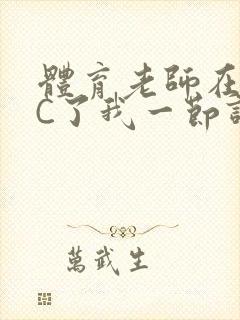 體育老師在
C了我一節
萬武生